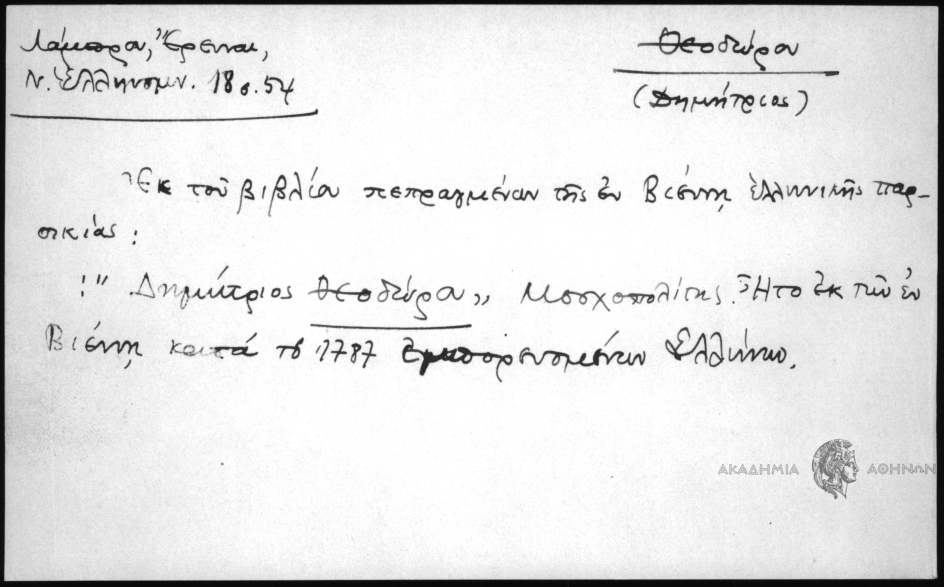 Λάμπρου, Ἔρευναι,
Ν. Ἑλληνομν. 18 σ. 54
Θεοδώρου
(Δημήτριος)
Ἐκ τοῦ βιβλίου πεπραγμένων τῆς ἐν Βιέννῃ ἑλληνικῆς παρ-
οικίας:
" Δημήτριος Θεοδώρου„ Μοσχοπολίτης. Ἦτο ἐκ τῶν ἐν
Βιέννῃ κατά τό 1787 ἐμπορευομένων Ἑλλήνων.
ΑΚΑΔΗΜΙΑ ΑΘΗΝΩΝ